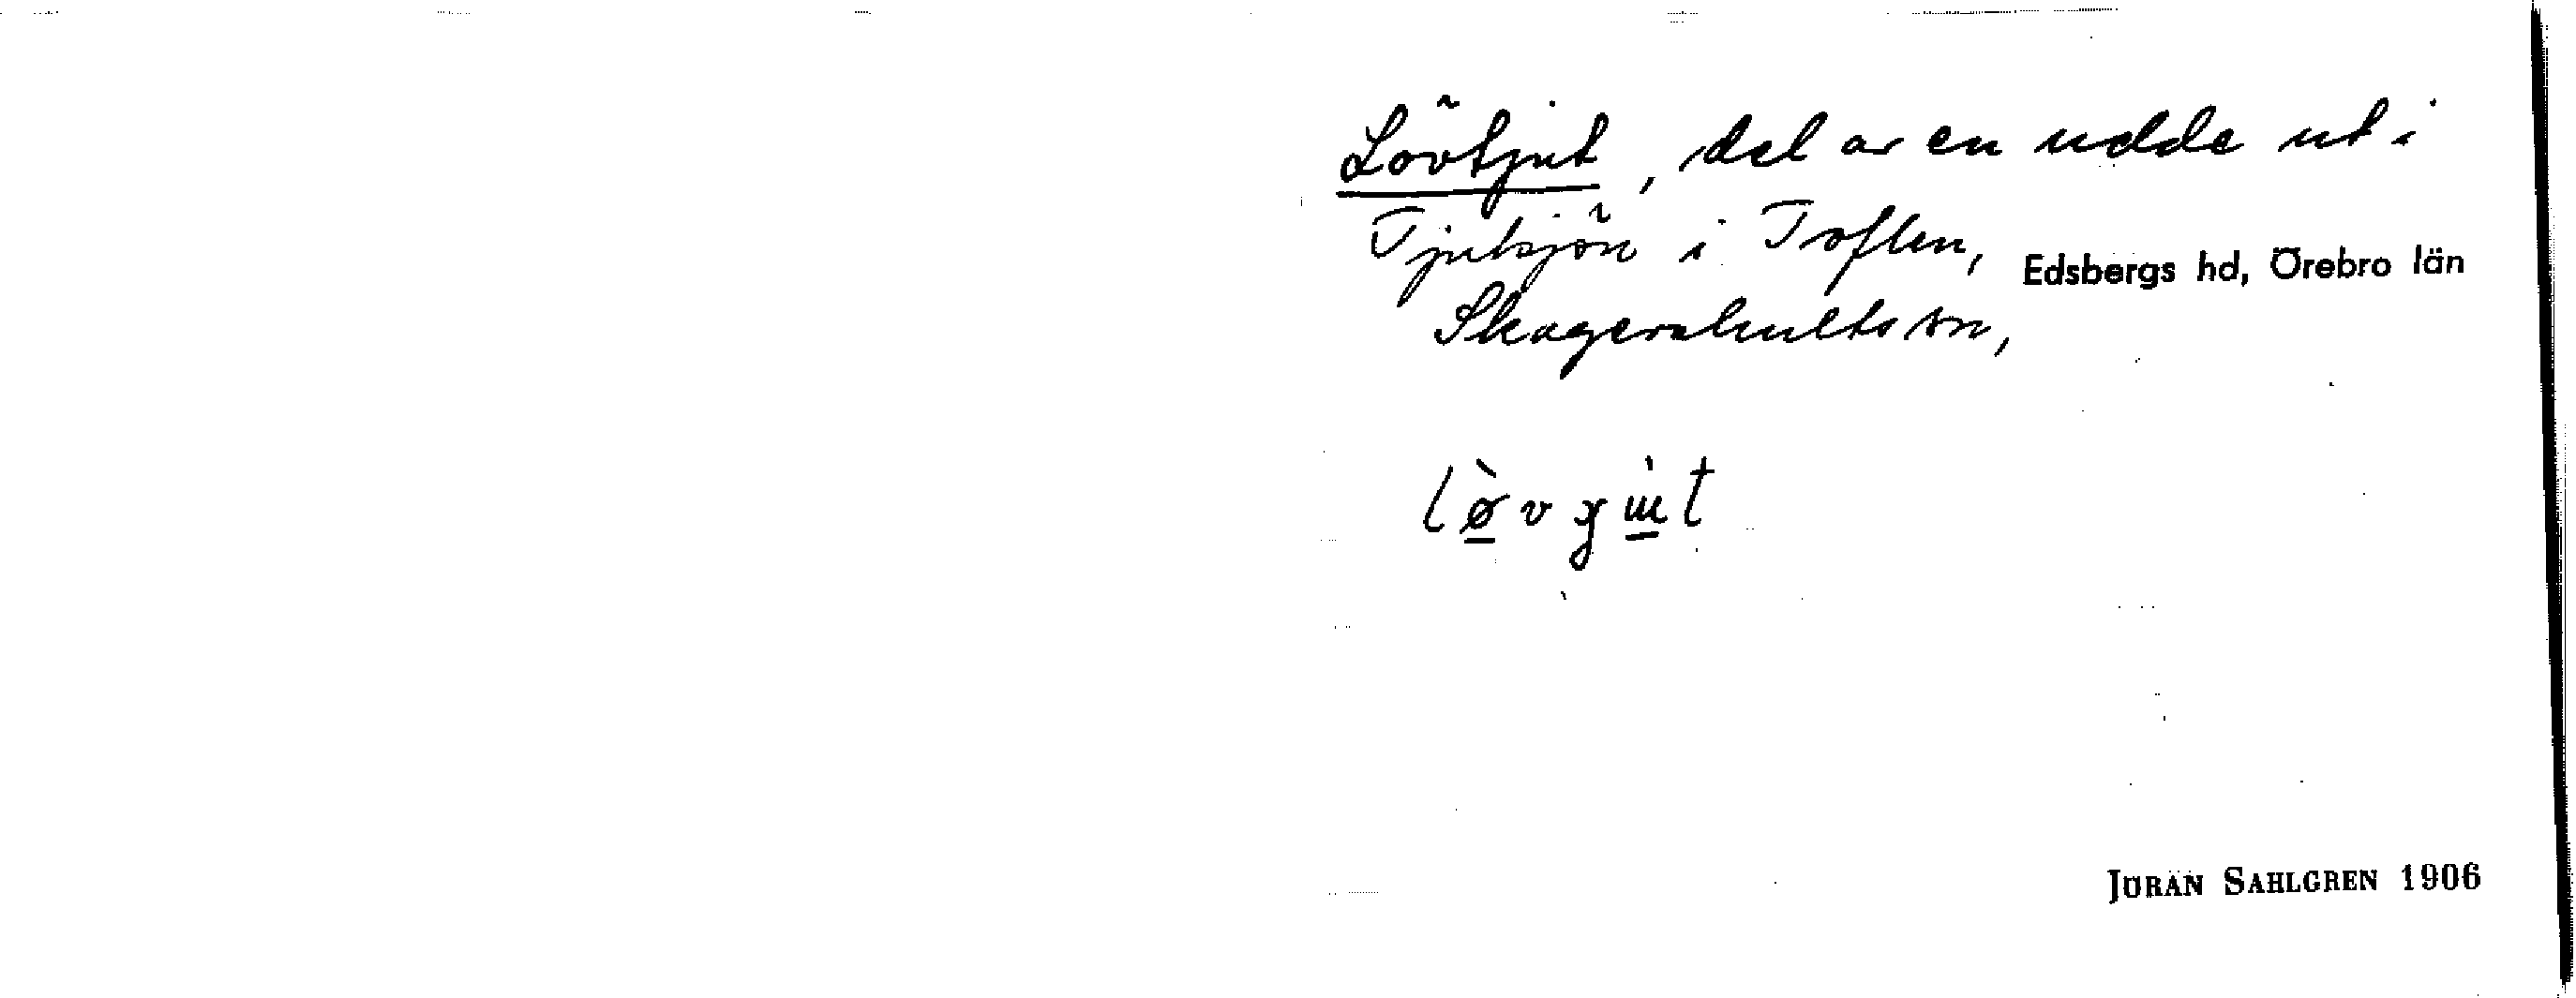 Lövtjut, del av en udde ut i
Tjutsjön i Toflen, Edsbergs hd, Örebro län
Skagershults sn,
JÖRAN SAHLGREN 1906